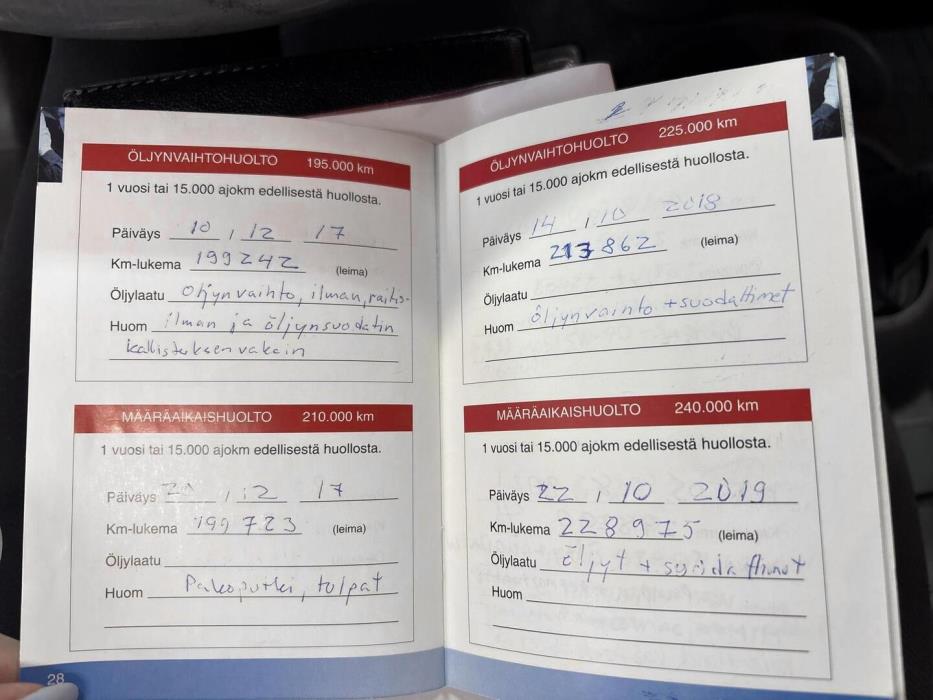 ÖLJYNVAIHTOHUOLTO 195.000 km
1 vuosi tai 15.000 ajokm edellisestä huollosta.
Päiväys 10 , 12 17
Km-lukema 199242 (leima)
Öljylaatu öljynvaihto, ilman, raitis-
Huom ilman ja öljynsuodatin
kallistuksenvakain
MÄÄRÄAIKAISHUOLTO 210.000 km
1 vuosi tai 15.000 ajokm edellisestä huollosta.
Päiväys 20 , 12 17
Km-lukema 199723 (leima)
Öljylaatu
Huom Pakoputki, tulpat
28
ÖLJYNVAIHTOHUOLTO 225.000 km
1 vuosi tai 15.000 ajokm edellisestä huollosta.
Päiväys 14 , 10 2018
Km-lukema 213862 (leima)
Öljylaatu
Huom öljynvaihto + suodattimet
MÄÄRÄAIKAISHUOLTO 240.000 km
1 vuosi tai 15.000 ajokm edellisestä huollosta.
Päiväys 22 , 10 2019
Km-lukema 228975 (leima)
Öljylaatu öljyt +
Huom